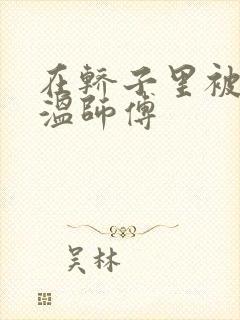 在轿子里被
温师傅
吴林